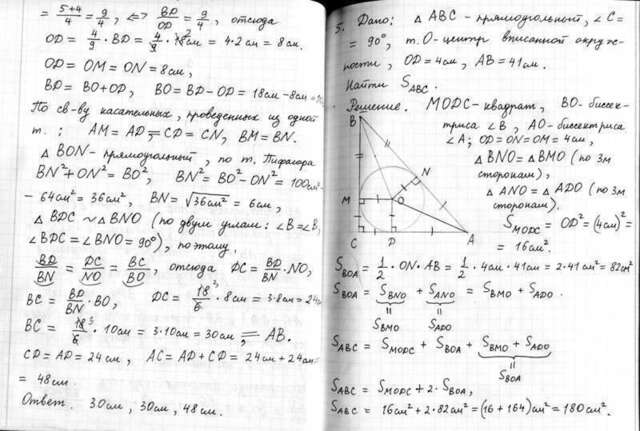 = 5+4/4 = 9/4, <=> BD/OD = 9/4, отсюда
OD = 4/9 · BD = 4/9 · 18см = 4·2см = 8см.
OD = OM = ON = 8см,
BD = BO+OD, BO = BD-OD = 18см-8см =
По св-ву касательных, проведенных из одной
т.: AM = AD = CD = CN, BM = BN.
△ BON - прямоугольный, по т. Пифагора
BN²+ON² = BO², BN² = BO²-ON² = 100см²-
- 64см² = 36см², BN = √36см² = 6см,
△ BDC ~ △ BNO (по двум углам: ∠B=∠B,
∠BDC = ∠BNO = 90°), поэтому
BD/BN = DC/NO = BC/BO, отсюда DC = BD/BN · NO,
BC = BD/BN · BO, DC = 18/6 3 · 8см = 3·8см = 24
BC = 18/6 3 · 10см = 3·10см = 30см = AB.
CD = AD = 24см, AC = AD+CD = 24см+24см=
= 48см.
Ответ. 30см, 30см, 48см.
5. Дано: △ ABC - прямоугольный, ∠C =
= 90°, т. O - центр вписанной окруж-
ности, OD = 4см, AB = 41см.
Найти S_ABC.
Решение. MODC - квадрат, BO - биссек-
триса ∠B, AO - биссектриса
∠A; OD = ON = OM = 4см,
△ BNO = △ BMO (по 3м
сторонам),
△ ANO = △ ADO (по 3м
сторонам).
S_MODC = OD² = (4см)² =
= 16см².
B
N
M
O
C
D
A
S_BOA = 1/2 · ON · AB = 1/2 · 4см · 41см = 2·41см² = 82см²
S_BOA = S_BNO + S_ANO = S_BMO + S_ADO.
S_BMO S_ADO
S_ABC = S_MODC + S_BOA + S_BMO + S_ADO
S_BOA
S_ABC = S_MODC + 2·S_BOA,
S_ABC = 16см² + 2·82см² = (16+164)см² = 180см².